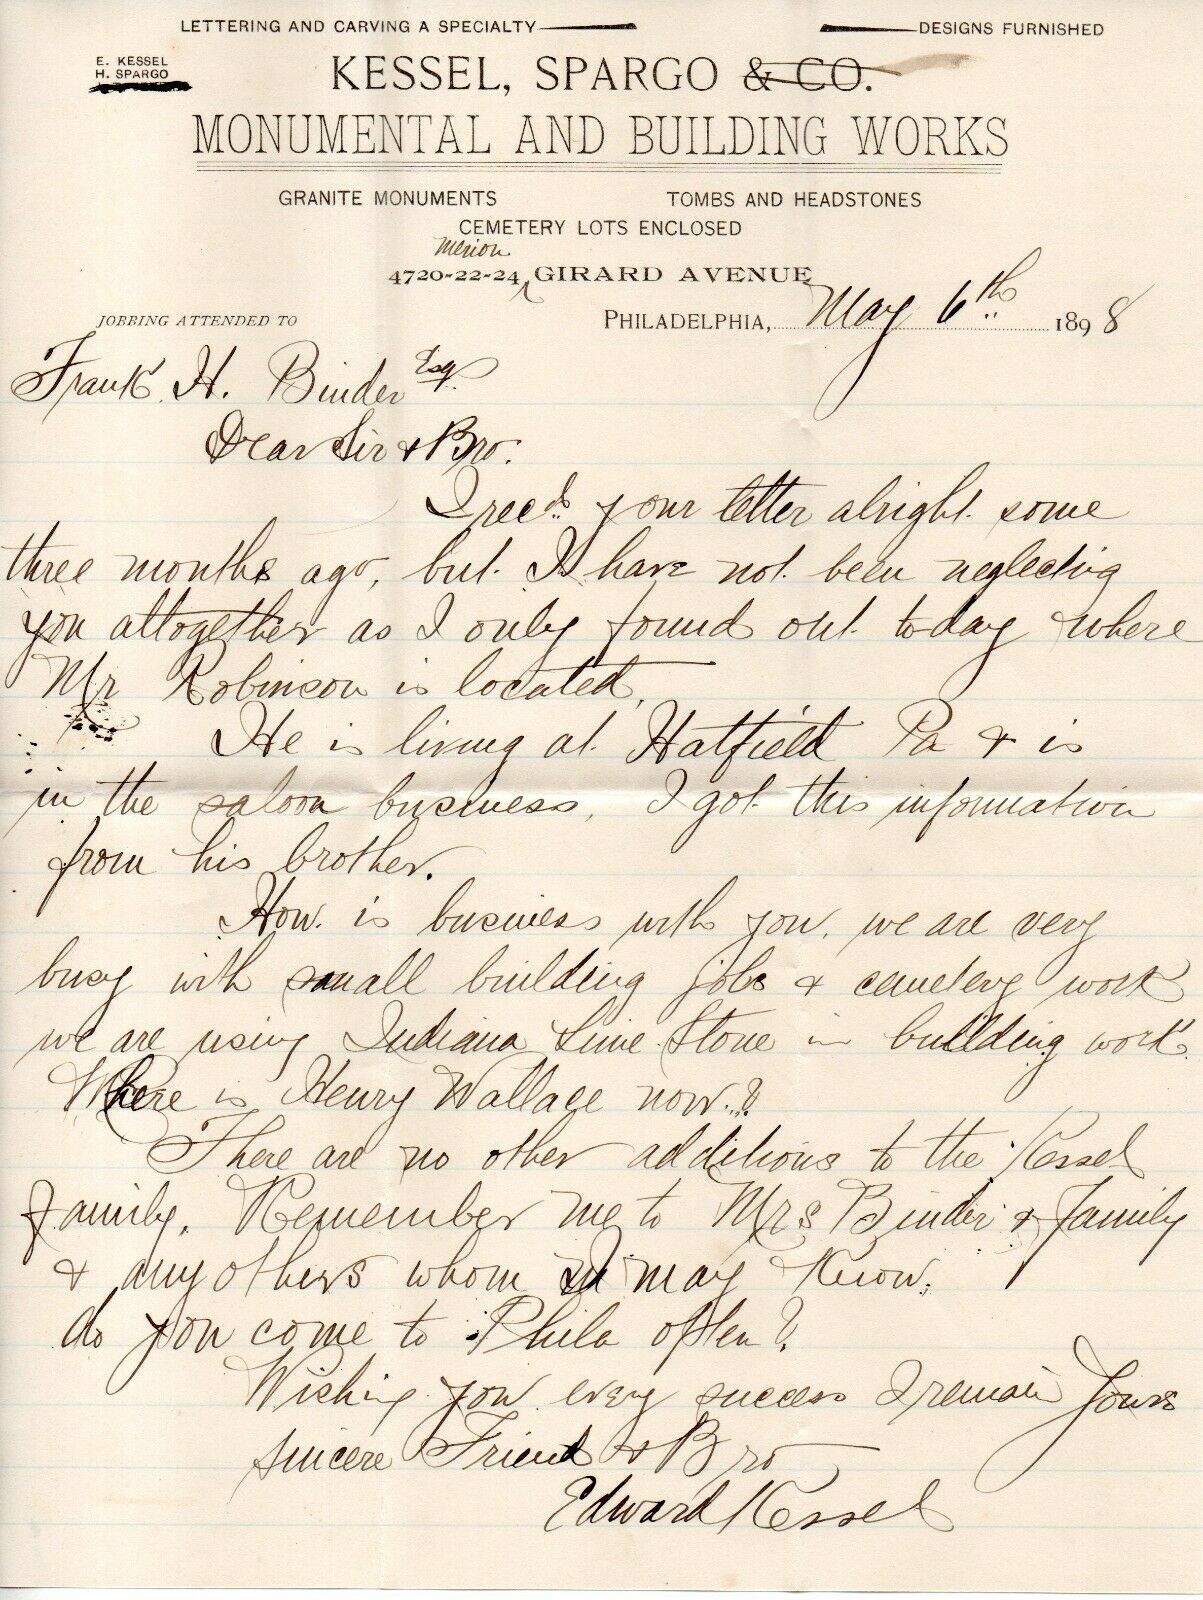 LETTERING AND CARVING A SPECIALTY DESIGNS FURNISHED
E. KESSEL
H. SPARGO
KESSEL, SPARGO & CO.
MONUMENTAL AND BUILDING WORKS
GRANITE MONUMENTS TOMBS AND HEADSTONES
CEMETERY LOTS ENCLOSED
Merion
4720-22-24 GIRARD AVENUE
JOBBING ATTENDED TO PHILADELPHIA, May 6th 1898
Frank. H. Binder Esq.
Dear Sir & Bro.
I recd your letter alright some
three months ago, but I have not been neglecting
you altogether as I only found out today where
Mr Robinson is located,
He is living at Hatfield Pa & is
in the saloon business, I got this information
from his brother.
How is business with you, we are very
busy with small building jobs & cemetery work
we are using Indiana Lime Stone in building work.
Where is Henry Wallace now?
There are no other additions to the Kessel
Family. Remember me to Mrs Binder & Family
& any others whom I may Know.
do you come to Phila often?
Wishing you every success I remain Yours
sincere Friend & Bro
Edward Kessel